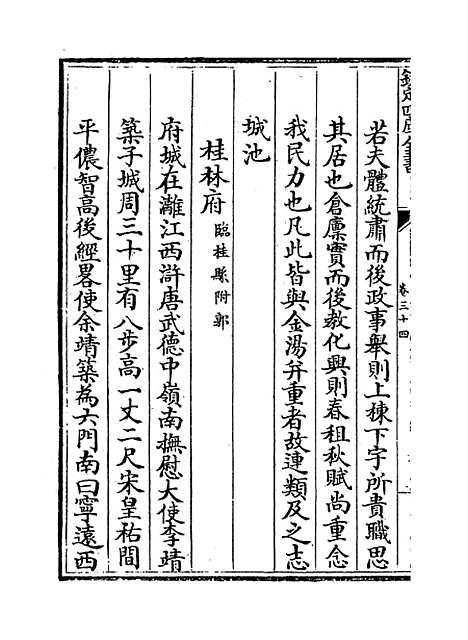 欽定四庫全書
卷三十四
若夫體統肅而後政事舉則上棟下宇所貴職思
其居也倉廩實而後教化興則春租秋賦尚重念
我民力也凡此皆與金湯並重者故連類及之志
城池
桂林府臨桂縣附郭
府城在灕江西滸唐武德中嶺南撫慰大使李靖
築子城周三十里有八步高一丈二尺宋皇祐間
平儂智高後經畧使余靖築為六門南曰寧遠西